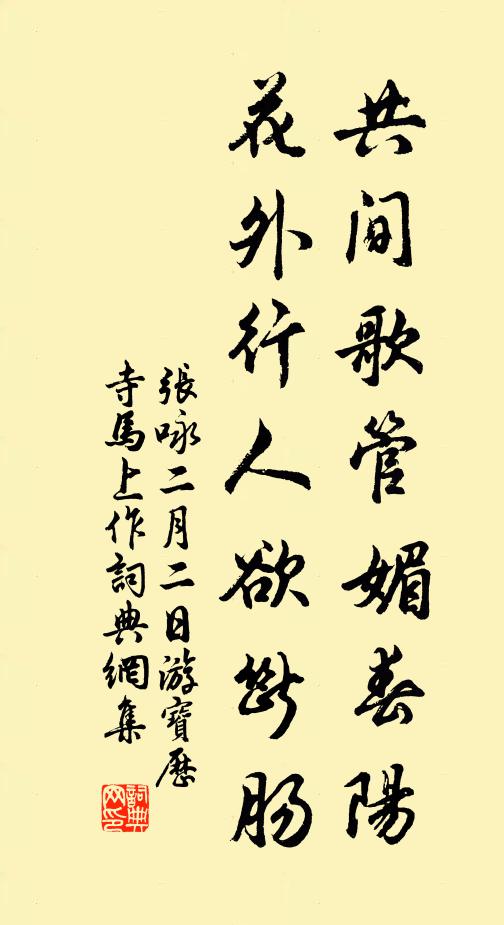 共间歌管媚春陽
花外行人欲斷肠
張咏二月二日游寶歷
寺馬上作詞典網集
詞典网印